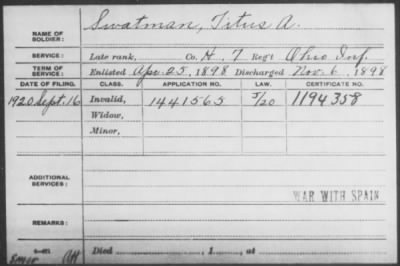 NAME OF SOLDIER: Swatman, Titus A.
SERVICE: Late rank, Co. H, 7 Reg't Ohio Inf.
TERM OF SERVICE: Enlisted Apr. 25, 1898 Discharged Nov. 6, 1898
DATE OF FILING. CLASS. APPLICATION NO. LAW. CERTIFICATE NO.
1920 Sept. 16 Invalid, 1441565 5/20 1194358
Widow,
Minor,
ADDITIONAL SERVICES:
WAR WITH SPAIN
REMARKS:
Died , 1 , at